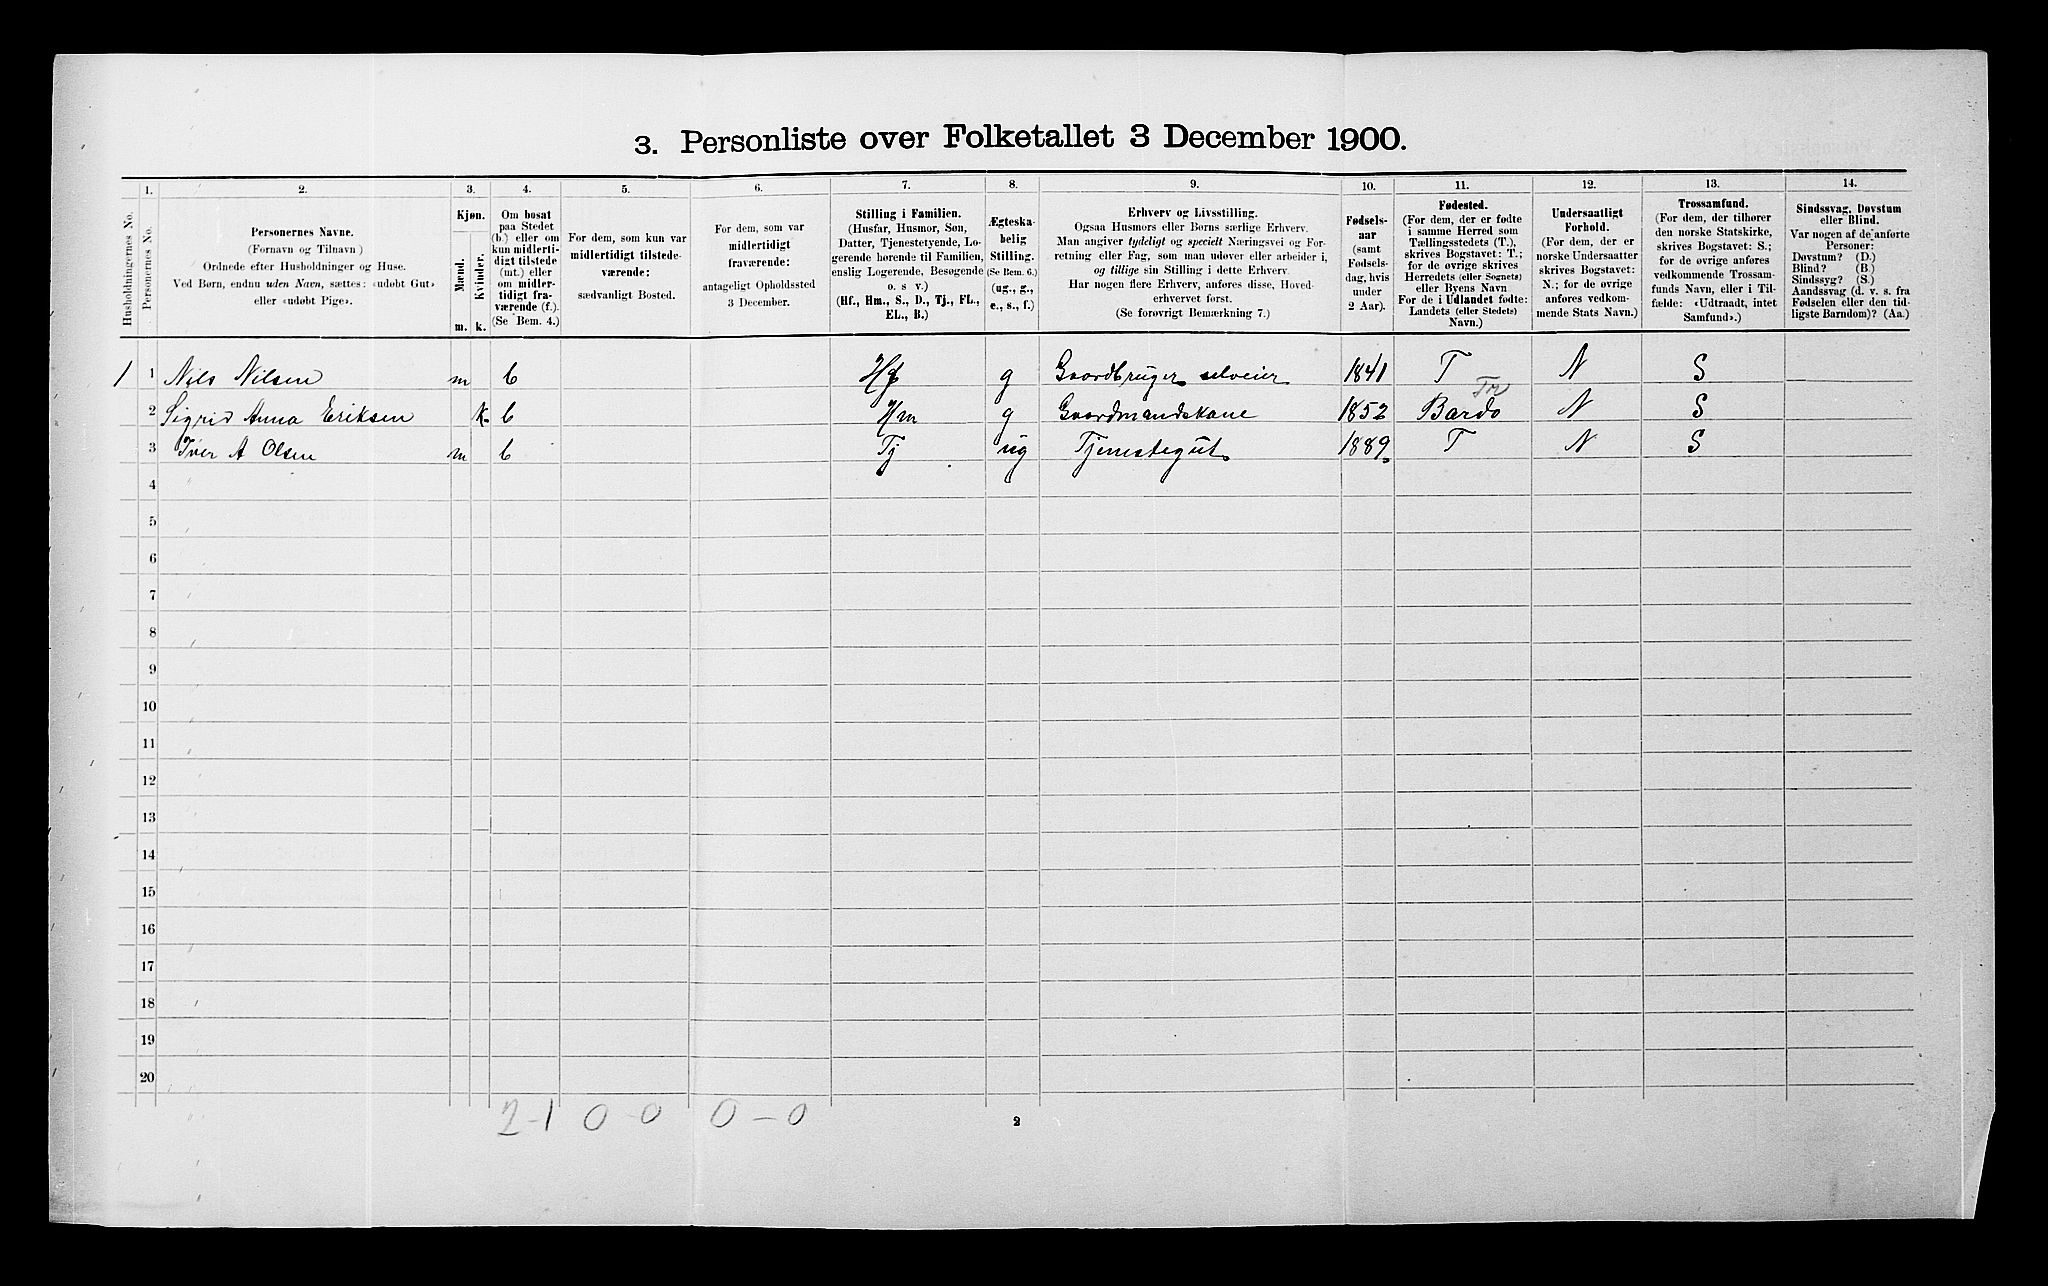 3. Personliste over Folketallet 3 December 1900.
1. 2. 3. 4. 5. 6. 7. 8. 9. 10. 11. 12. 13. 14.
Husholdningernes No.
Personernes No.
Personernes Navne.
(Fornavn og Tilnavn)
Ordnede efter Husholdninger og Huse.
Ved Børn, endnu uden Navn, sættes: «udøbt Gut»
eller «udøbt Pige».
Kjøn.
Mænd.
Kvinder.
m. k.
Om bosat
paa Stedet
(b.) eller om
kun midlerti-
digt tilstede
(mt.) eller
om midler-
tidigt fra-
værende (f.).
(Se Bem. 4.)
For dem, som kun var
midlertidigt tilstede-
værende:
sædvanligt Bosted.
For dem, som var
midlertidigt
fraværende:
antageligt Opholdssted
3 December.
Stilling i Familien.
(Husfar, Husmor, Søn,
Datter, Tjenestetyende, Lo-
gerende hørende til Familien,
enslig Logerende, Besøgende
o. s v.)
(Hf., Hm., S., D., Tj., FL.,
EL., B.)
Ægteska-
belig
Stilling.
(Se Bem. 6.)
(ug., g.,
e., s., f.)
Erhverv og Livsstilling.
Ogsaa Husmors eller Børns særlige Erhverv.
Man angiver tydeligt og specielt Næringsvei og For-
retning eller Fag, som man udøver eller arbeider i,
og tillige sin Stilling i dette Erhverv.
Har nogen flere Erhverv, anføres disse, Hoved-
erhvervet først.
(Se forøvrigt Bemærkning 7.)
Fødsels-
aar
(samt
Fødsels-
dag, hvis
under
2 Aar).
Fødested.
(For dem, der er fødte
i samme Herred som
Tællingsstedets (T.),
skrives Bogstavet: T.;
for de øvrige skrives
Herredets (eller Sognets)
eller Byens Navn
For de i Udlandet fødte:
Landets (eller Stedets)
Navn.)
Undersaatligt
Forhold.
(For dem, der er
norske Undersaatter
skrives Bogstavet:
N.; for de øvrige
anføres vedkom-
mende Stats Navn.)
Trossamfund.
(For dem, der tilhører
den norske Statskirke,
skrives Bogstavet: S.;
for de øvrige anføres
vedkommende Trossam-
funds Navn, eller i Til-
fælde: «Udtraadt, intet
Samfund».)
Sindssvag, Døvstum
eller Blind.
Var nogen af de anførte
Personer:
Døvstum? (D.)
Blind? (B.)
Sindssyg? (S.)
Aandssvag (d. v. s. fra
Fødselen eller den tid-
ligste Barndom)? (Aa.)
1 1 Nils Nilsen m b Hf g Gaardbruger selveier 1841 T N S
Tr
2 Sigrid Anna Eriksen K. b Hm g Gaardmandskone 1852 Bardo N S
3 Iver A Olsen m b Tj ug Tjenestegut 1889. T N S
4
5
6
7
8
9
10
11
12
13
14
15
16
17
18
19
20
2-1 0-0 0-0
2